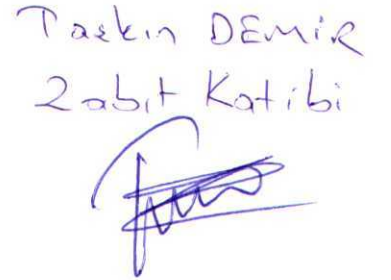 Taşkın DEMİR
Zabıt Katibi